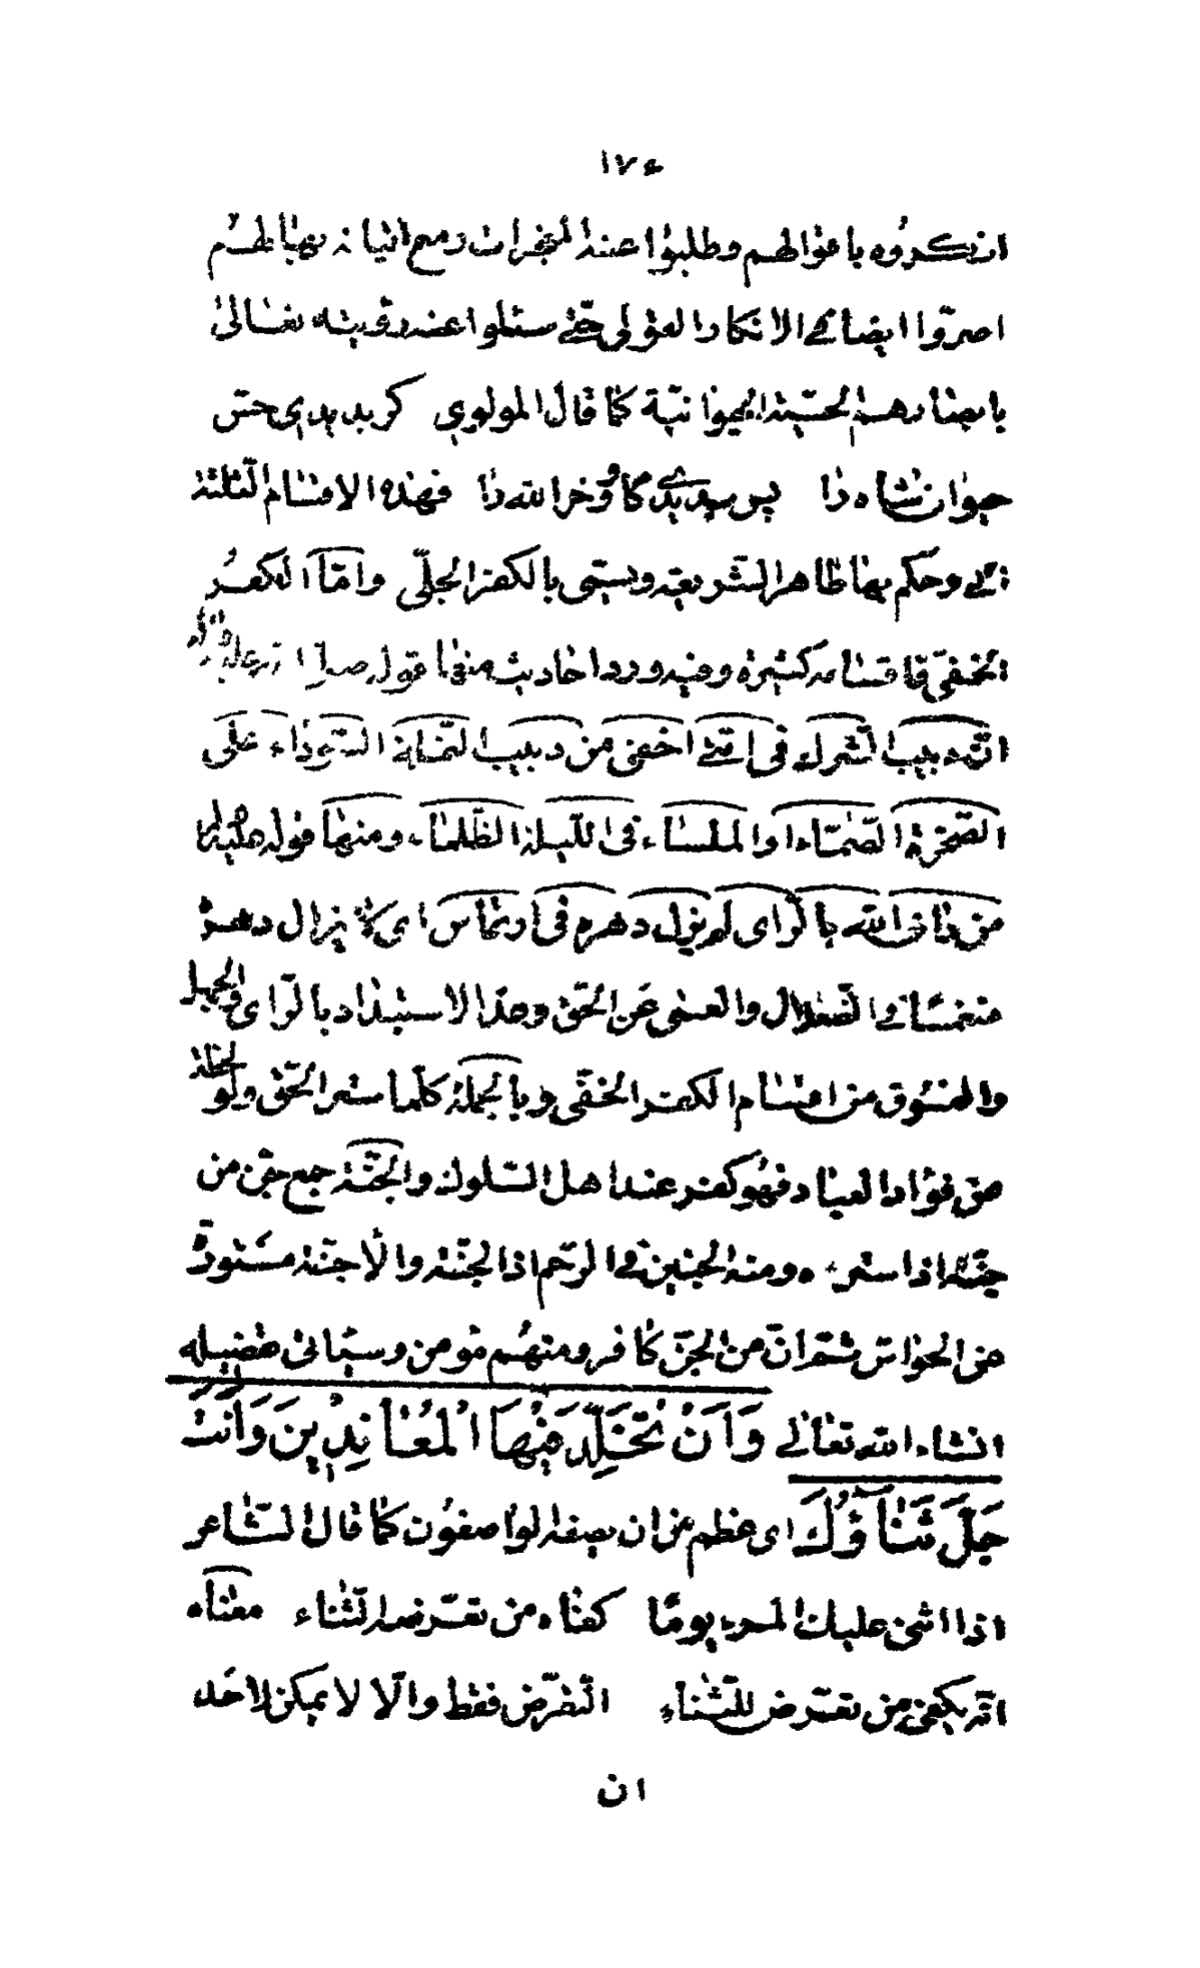 ١٧٤
انكروه باعوالهم وطلبوا عنه المعجزات ومع اتيانه بها لهم
اصرّوا ايضا في الانكار والعوى حتّى سئلوا عنه رؤيته تعالى
بابصارهم الحسّية الحيوانيّة كما قال المولوي كر بديدى حسّ
حيوان شاه را پس بديدى گاو وخر الله را فهذه الاقسام الثلثة
وحكم بها ظاهر الشّريعة ويسمّى بالكفر الجلّى وامّا الكفر
الخفىّ فاقسامه كثيرة وفيه ورد احاديث منها قوله صلى الله عليه وآله
انّ دبيب الشّرك فى امّتى اخفى من دبيب النّملة السّوداء على
الصّخرة الصّمّاء والملساء فى اللّيلة الظّلماء ومنها قوله
من دان الله بالرّاى لم يزل دهره فى ارتماس اى لا يزال دهره
منغمسًا فى الضّلال والعمى عن الحقّ وهذا الاستبداد بالرّاى والجهل
والفسوق من اقسام الكفر الخفّى وبالجملة كلّما ستر الحقّ ولو لحظة
من فؤاد العباد فهو كفر عند اهل السّلوك والجنّة جمع جنّ من
جنّه اذا ستره ومنه الجنين فى الرّحم اذ الجنّة والاجنّة مستورة
عن الحواسّ ثمّ انّ من الجنّ كافر ومنهم مومن وسياتى تفصيله
انشاء الله تعالى وَاَنْ تُخَلِّدَ فِيْهَا الْمُعَانِدِيْنَ وَاَنْتَ
جَلَّ ثَنَاؤُكَ اى عظم من ان يصفه الواصفون كما قال الشّاعر
اذا اثنى عليك المرء يومًا كفاه من تعرّضه الثّناء معناه
انّه يكفى من تعرّض للثّناء التعرّض فقط والّا لا يمكن لاحد
ان